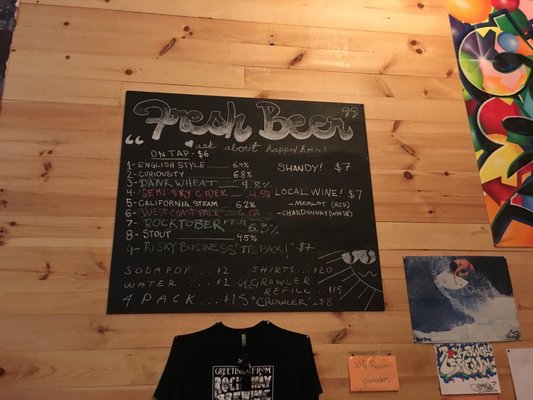 "Fresh Beer"
ask about happy hour!
ON TAP - $6
1 - ENGLISH STYLE 6.4%
2 - CURIOUSITY 6.8%
3 - DANK WHEAT 4.8%
4 - SEMI-DRY CIDER 4.5%
5 - CALIFORNIA STEAM 6.2%
6 - WEST COAST PALE
7 - ROCKTOBERFEST 6.3%
8 - STOUT 4.5%
9 - RISKY BUSINESS 'ITS BACK!' $7
SHANDY! $7
LOCAL WINE! $7
- MERLOT (RED)
- CHARDONNAY (WHITE)
SODA POP ... $2
WATER ... $1
4 PACK ... $15
SHIRTS ... $20
GROWLER
REFILL ... $15
"CROWLER" - $8
GREETINGS FROM
ROCKAWAY
BREWING